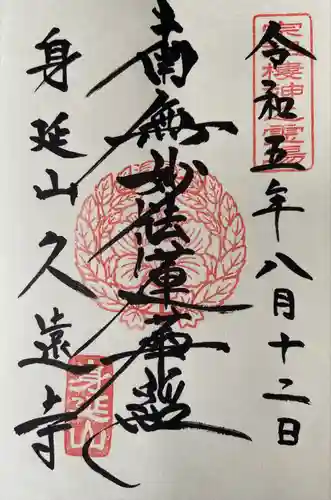 令和五年八月十二日
南無妙法蓮華経
身延山久遠寺
身延山